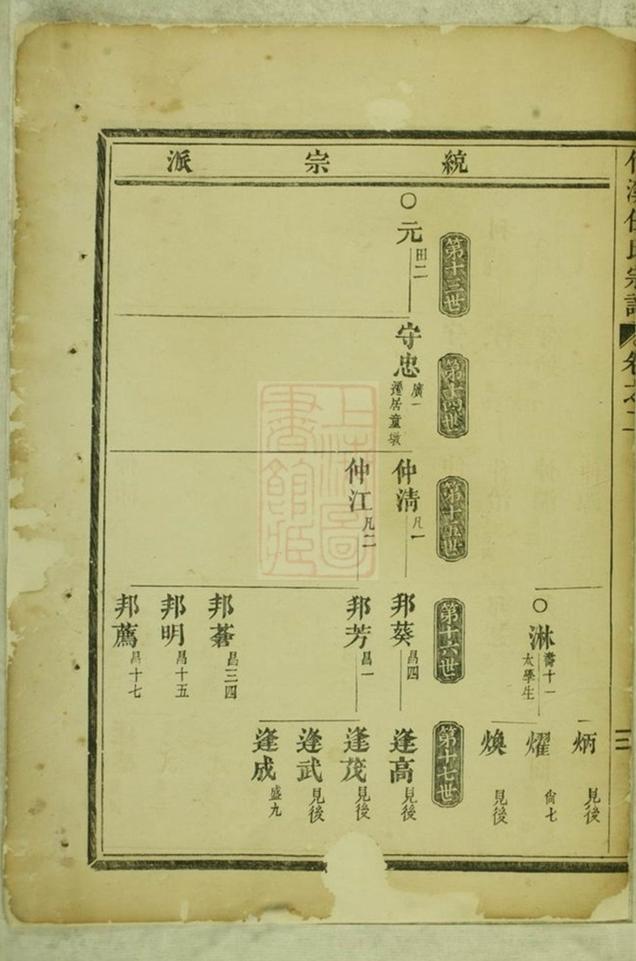 統宗派
氏宗譜
卷之二
三
炳 見後
○淋 壽十一 太學生
燿 尙七
煥 見後
第十三世
第十四世
第十五世
第十六世
第十七世
○元 田二
守忠 廣一 遷居童墩
仲清 凡一
邦葵 昌四
逢高 見後
仲江 凡二
邦芳 昌一
逢茂 見後
逢武 見後
逢成 盛九
邦菶 昌三四
邦明 昌十五
邦薦 昌十七
上海圖書館藏